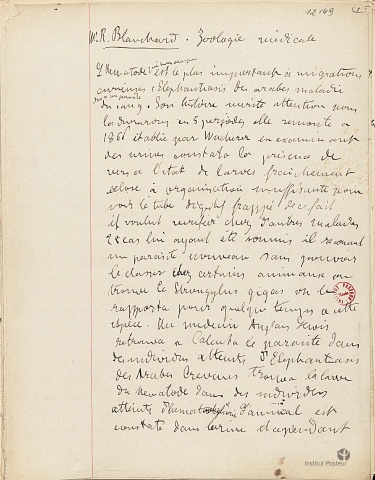 12149
Mr R. Blanchard. Zoologie médicale
Nématode
est le plus important à migrations
Elephantiasis des arabes maladie
du sang. Son histoire mérite attention nous
la diviserons en 5 périodes elle remonte à
1866 établie par Wucherer en examinant
des urines constata la présence de
vers à l'état de larves fraichement
eclose à organisation insuffisante pour
voir le tube digestif frappé de ce fait
il voulut verifier chez d'autres malades
28 cas lui ayant été soumis il reconnut
un parasite nouveau sans pouvoir
le classer chez certains animaux on
trouve le Strongylus gigas on le
rapporta pour quelque temps à cette
espèce. Un medecin Anglais Lewis
retrouva à Calcuta le parasite dans
des individus atteints d'Elephantiasis
des Arabes Crevaux trouva la larve
du Nematode dans des individus
atteints d'hématochylurie l'animal est
constaté dans l'urine et cependant
Institut Pasteur